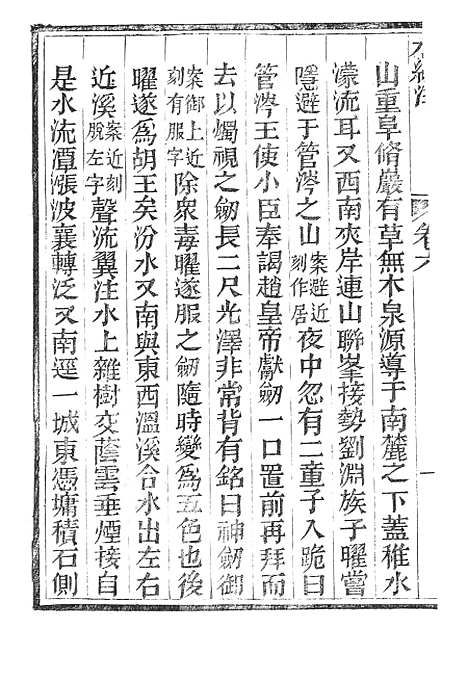 水經注 卷六 一
山重阜脩巖有草無木泉源導于南麓之下蓋稚水
濛流耳又西南夾岸連山聯峯接勢劉淵族子曜嘗
隱避于管涔之山案避近刻作居夜中忽有二童子入跪曰
管涔王使小臣奉謁趙皇帝獻劒一口置前再拜而
去以燭視之劒長二尺光澤非常背有銘曰神劒御
案御上近刻有服字除衆毒曜遂服之劒隨時變爲五色也後
曜遂爲胡王矣汾水又南與東西溫溪合水出左右
近溪案近刻脫左字聲流翼注水上雜樹交蔭雲垂煙接自
是水流潭漲波襄轉泛又南逕一城東憑墉積石側